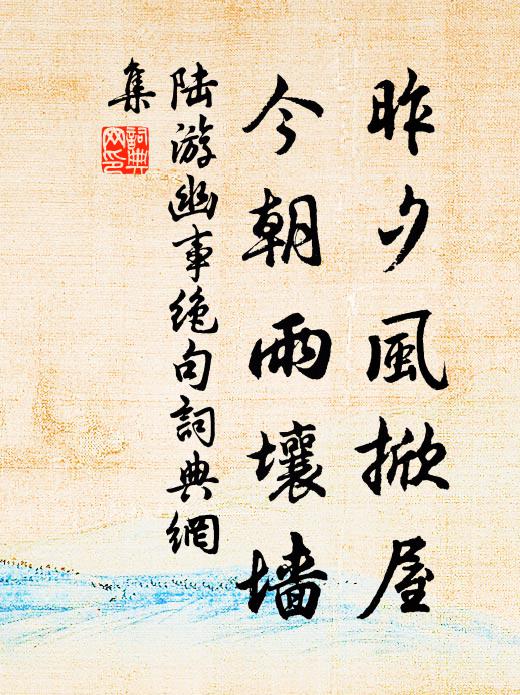 昨夕風掀屋
今朝雨壤墙
陆游幽事绝句詞典網
集
詞典
网印